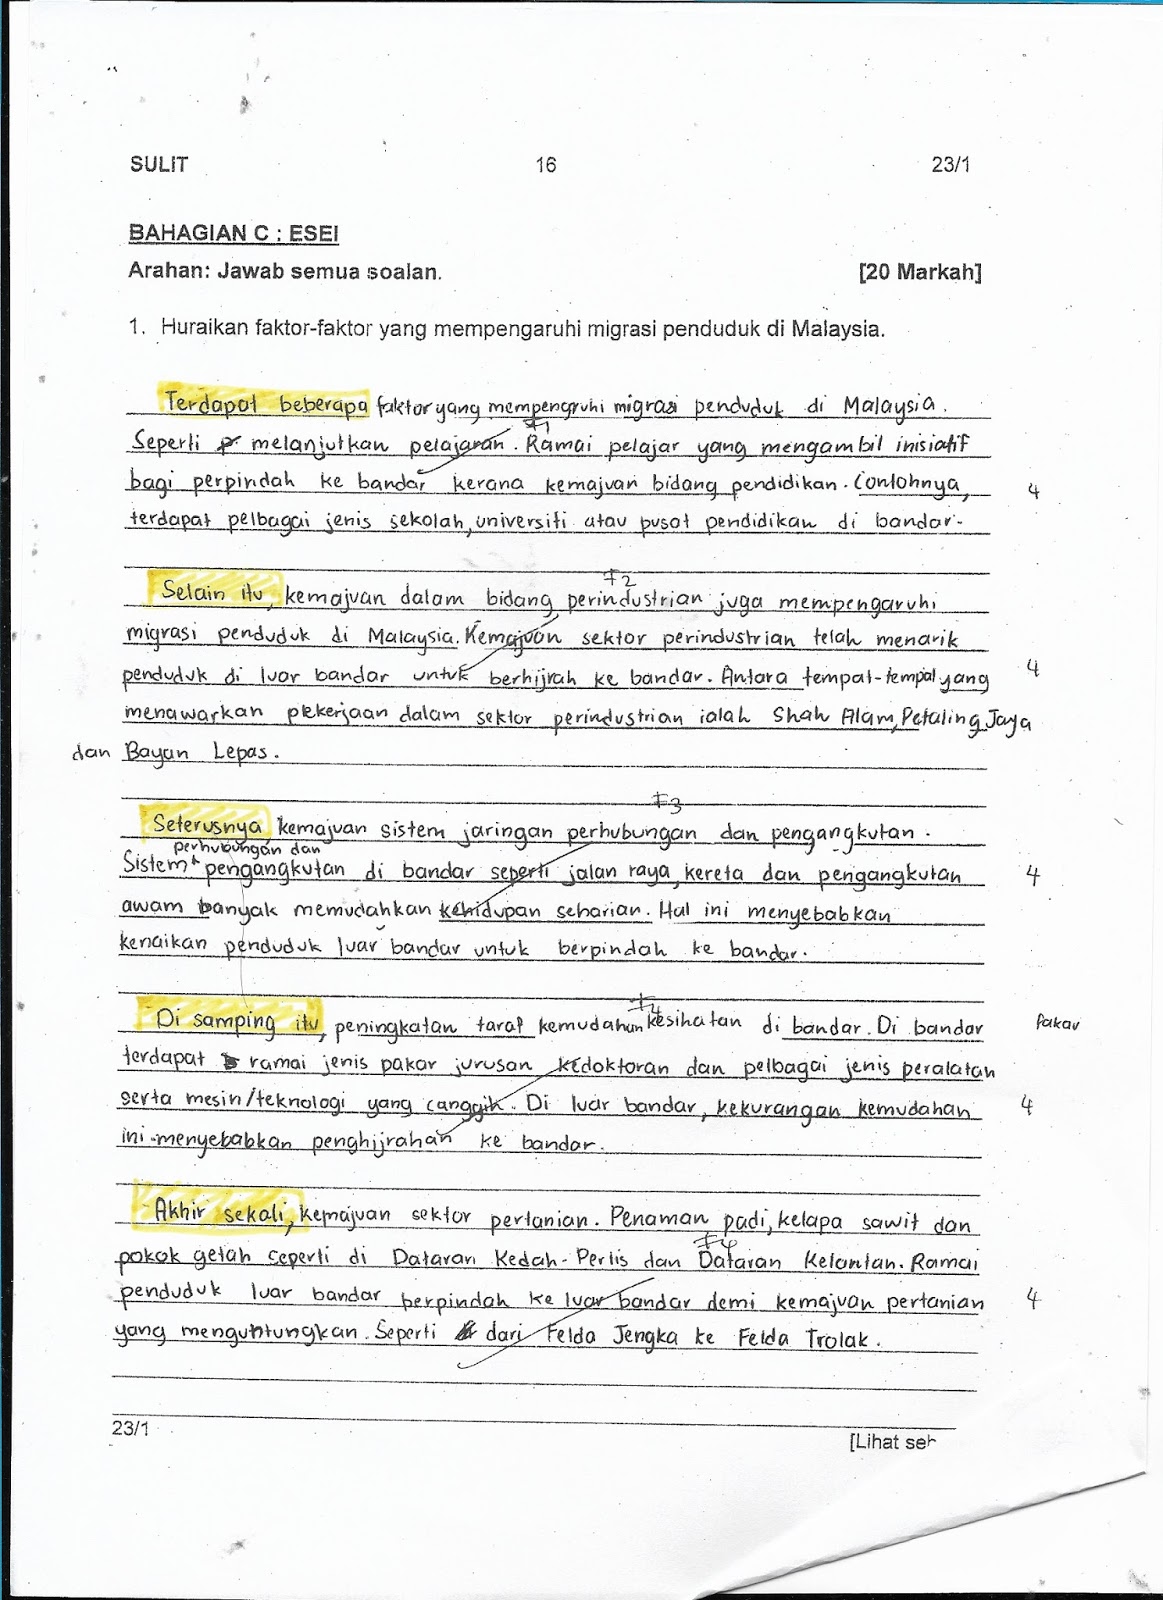 SULIT 16 23/1
BAHAGIAN C : ESEI
Arahan: Jawab semua soalan. [20 Markah]
1. Huraikan faktor-faktor yang mempengaruhi migrasi penduduk di Malaysia.
Terdapat beberapa faktor yang mempengruhi migrasi penduduk di Malaysia.
F1
Seperti melanjutkan pelajaran. Ramai pelajar yang mengambil inisiatif
bagi perpindah ke bandar kerana kemajuan bidang pendidikan. Contohnya, 4
terdapat pelbagai jenis sekolah, universiti atau pusat pendidikan di bandar.
F2
Selain itu, kemajuan dalam bidang perindustrian juga mempengaruhi
migrasi penduduk di Malaysia. Kemajuan sektor perindustrian telah menarik
penduduk di luar bandar untuk berhijrah ke bandar. Antara tempat-tempat yang 4
menawarkan pekerjaan dalam sektor perindustrian ialah Shah Alam, Petaling Jaya
dan Bayan Lepas.
F3
Seterusnya, kemajuan sistem jaringan perhubungan dan pengangkutan.
perhubungan dan
Sistem pengangkutan di bandar seperti jalan raya, kereta dan pengangkutan 4
awam banyak memudahkan kehidupan seharian. Hal ini menyebabkan
kenaikan penduduk luar bandar untuk berpindah ke bandar.
F4
Di samping itu, peningkatan taraf kemudahan kesihatan di bandar. Di bandar
terdapat ramai jenis pakar jurusan kedoktoran dan pelbagai jenis peralatan
serta mesin/teknologi yang canggih. Di luar bandar, kekurangan kemudahan 4
ini menyebabkan penghijrahan ke bandar.
Akhir sekali, kemajuan sektor pertanian. Penaman padi, kelapa sawit dan
F4
pokok getah seperti di Dataran Kedah-Perlis dan Dataran Kelantan. Ramai
penduduk luar bandar berpindah ke luar bandar demi kemajuan pertanian 4
yang menguntungkan. Seperti dari Felda Jengka ke Felda Trolak.
23/1
[Lihat seb